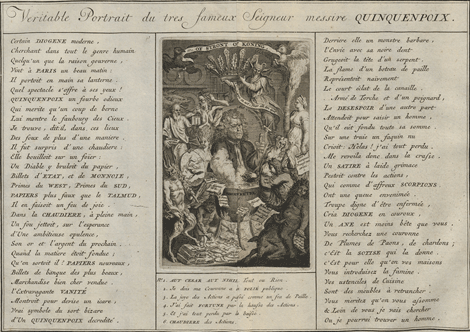 Veritable Portrait du tres fameux Seigneur messire QUINQUENPOIX.
Certain DIOGENE moderne,
Cherchant dans tout le genre humain
Quelqu'un que la raison gouverne,
Vint à PARIS un beau matin:
Il portoit en main sa lanterne
Quel spectacle s'offre à ses yeux!
QUINQUENPOIX un fourbe odieux
Qui merite qu'un coup de berne
Lui montre le faubourg des Cieux
Je trouve, dit-il, dans ces lieux
Des foux de plus d'une maniere;
Il fut surpris d'une chaudiere:
Elle bouilloit sur un foïer
Un Diable y bruloit du papier,
Billets d'ETAT, et de MONNOIE,
Primes du WEST, Primes du SUD,
PAPIERS plus foux que le TALMUD,
Il en faisoit un feu de joie
Dans la CHAUDIERE, à pleine main
Un fou jettoit, sur l'esperance
D'une ambitieuse opulence,
Son or et l'argent du prochain.
Quand la matiere étoit fondue;
Qu'en sortoit-il? PAPIERS nouveaux,
Billets de banque des plus beaux,
Marchandise bien cher vendue:
L'extravagante VANITÉ
Montroit pour devise un
Vrai symbole du sort bizare
D'un QUINQUENPOIX decredité.
DE STRONT KONING
Nº 1. AUT CESAR AUT NIHIL, Tout ou Rien
2. Je dois ma Couronne à la FOLIE publique.
3. La joye des Actions a passé comme un feu de Paille
4. J'ai fait FORTUNE par la hausse des Actions
5. Et j'ai tout perdu par la baisse.
6. CHAUDIERE des Actions.
Derriere elle un monstre barbare,
L'Envie avec sa noire dent
Grugeoit la tête d'un serpent,
La flame d'un botton de paille
Representoit naivement
Le court éclat de la canaille.
Armé de Torche et d'un poignard,
Le DESESPOIR d'une autre part
Attendoit pour saisir un homme,
Qu'il eut fondu toute sa somme
Sur une trais un faquin nu
Crioit: Helas! j'ai tout perdu.
Me revoila donc dans la crasse
Un SATIRE à laide grimace
Pestoit contre les actions,
Qui comme d'affreux SCORPIONS
Ont une queue envenimée.
Troupe digne d'être enfermée,
Cria DIOGENE en couroux,
Un ANE est moins bête que vous
Vous recherchez une couronne
De Plumes de Paons, de chardons;
C'est la SOTISE qui la donne:
C'est pour elle qu'en vos maisons
Vous introduisez la famine:
Vos ustenciles de Cuisine
Sont des meubles à retrancher.
Vous meritez qu'on vous assomme
Et Loin de vous je vais chercher
Ou je pourrai trouver un homme.